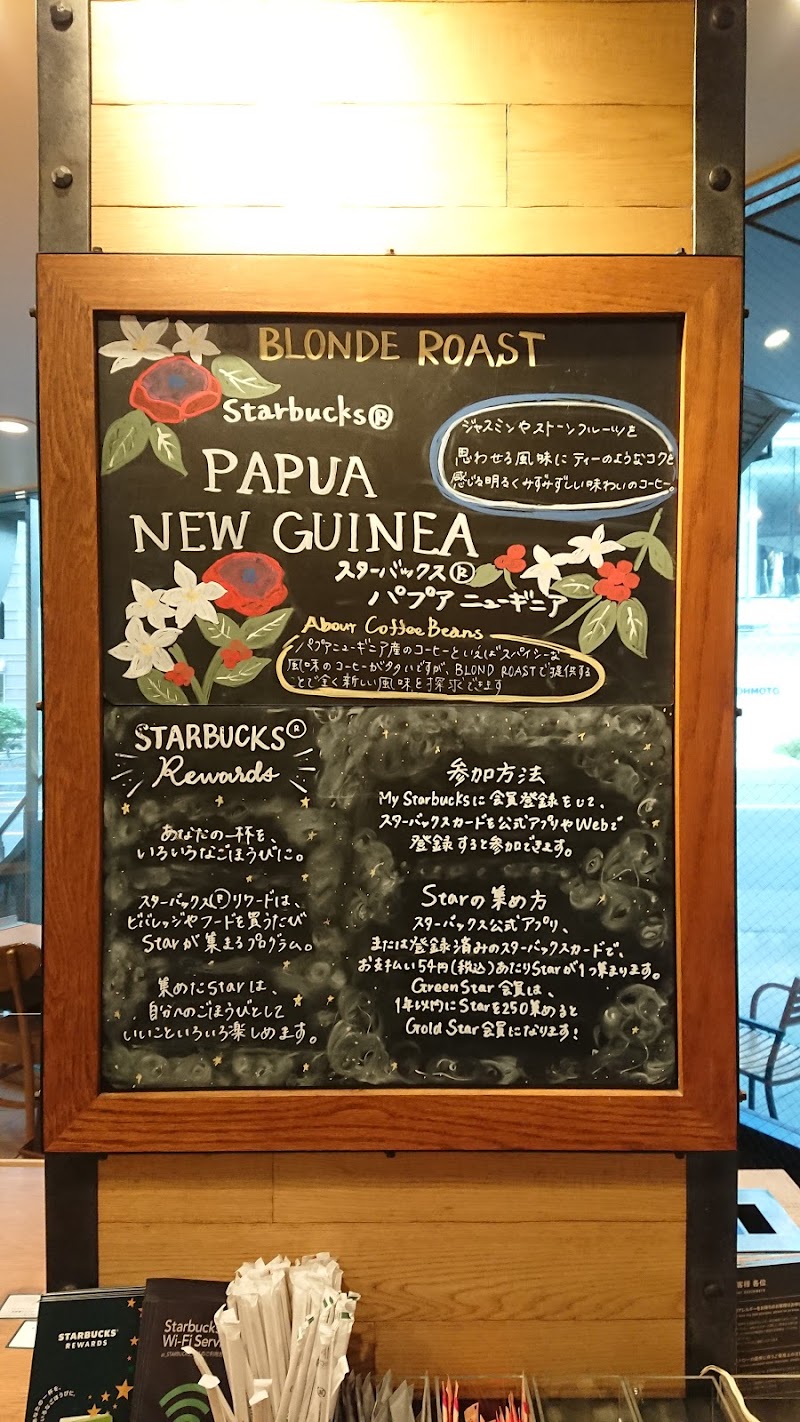 BLONDE ROAST
Starbucks®
PAPUA
NEW GUINEA
スターバックス®
パプア ニューギニア
ジャスミンやストーンフルーツを
思わせる風味に ティーのようなコクと
感じる明るくみずみずしい味わいのコーヒー。
About Coffee Beans
パプアニューギニア産のコーヒーといえばスパイシーな
風味のコーヒーが多いですが、BLOND ROASTで提供する
ことで全く新しい風味を探求できます
STARBUCKS®
Rewards
あなたの一杯を、
いろいろなごほうびに。
スターバックス®リワードは、
ビバレッジやフードを買うたび
Starが集まるプログラム。
集めたStarは、
自分へのごほうびとして
いいこといろいろ楽しめます。
参加方法
My Starbucksに会員登録をして、
スターバックスカードを公式アプリやWebで
登録すると参加できます。
Starの集め方
スターバックス公式アプリ、
または登録済みのスターバックスカードで、
お支払い54円(税込)あたりStarが1つ集まります。
Green Star会員は、
1年以内にStarを250集めると
Gold Star会員になります!
OHMOTO
STARBUCKS®
REWARDS
あなたの一杯を、
いろいろなごほうびに。
Starbucks
Wi-Fi Servi
客様各位